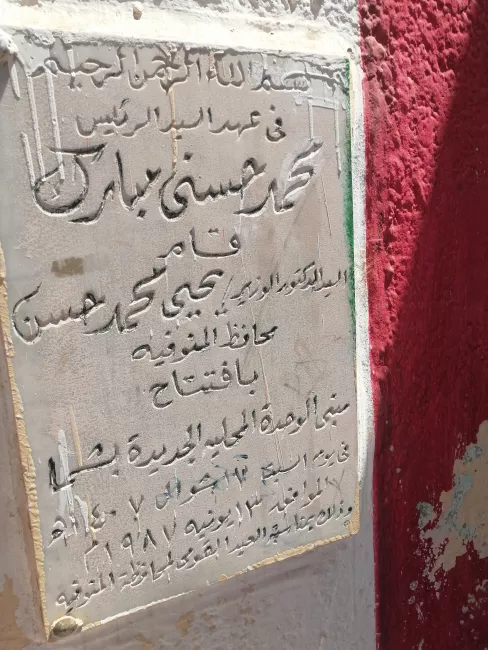 بسم الله الرحمن الرحيم
فى عهد السيد الرئيس
محمد حسنى مبارك
قام
السيد الدكتور الوزير/ يحيى محمد حسن
محافظ المنوفيه
بافتتاح
مبنى الوحدة المحليه الجديدة بشمـا
فى يوم السبت ١٧ شوال ١٤٠٧ هـ
الموافق ١٣ يونيه ١٩٨٧ م
وذلك بمناسبة العيد القومى لمحافظة المنوفيه